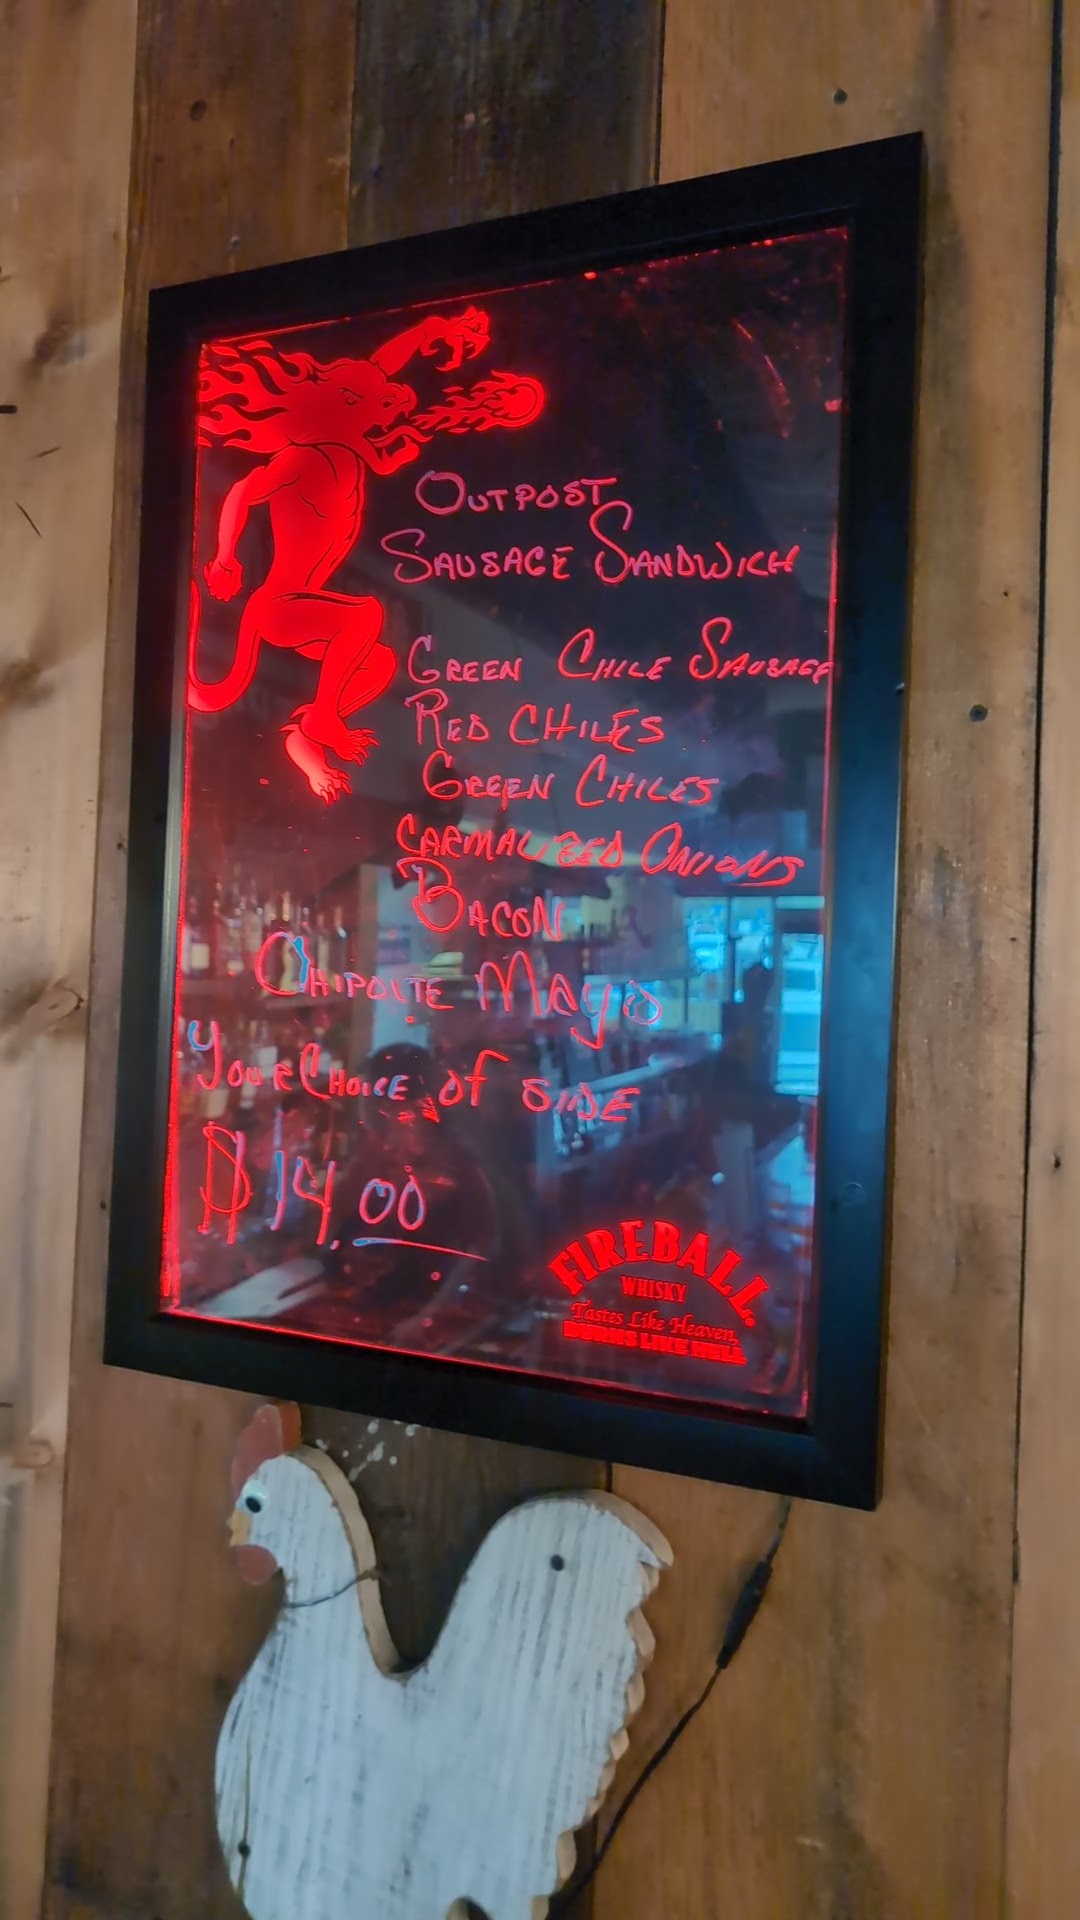 OUTPOST
SAUSAGE SANDWICH
GREEN CHILE SAUSAGE
RED CHILES
GREEN CHILES
CARMALIZED ONIONS
BACON
CHIPOLTE MAYO
YOUR CHOICE OF SIDE
$14.00
FIREBALL
WHISKY
Tastes Like Heaven,
BURNS LIKE HELL